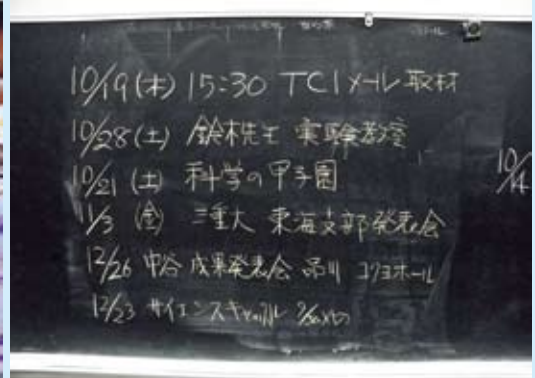 10/19(木) 15:30 TCIメール取材
10/28(土) 鈴木先生 実験教室
10/21(土) 科学の甲子園
11/3(金) 三重大 東海支部発表会
12/26 中谷 成果発表会 品川 コクヨホール
12/23 サイエンスキャッスル
10/14